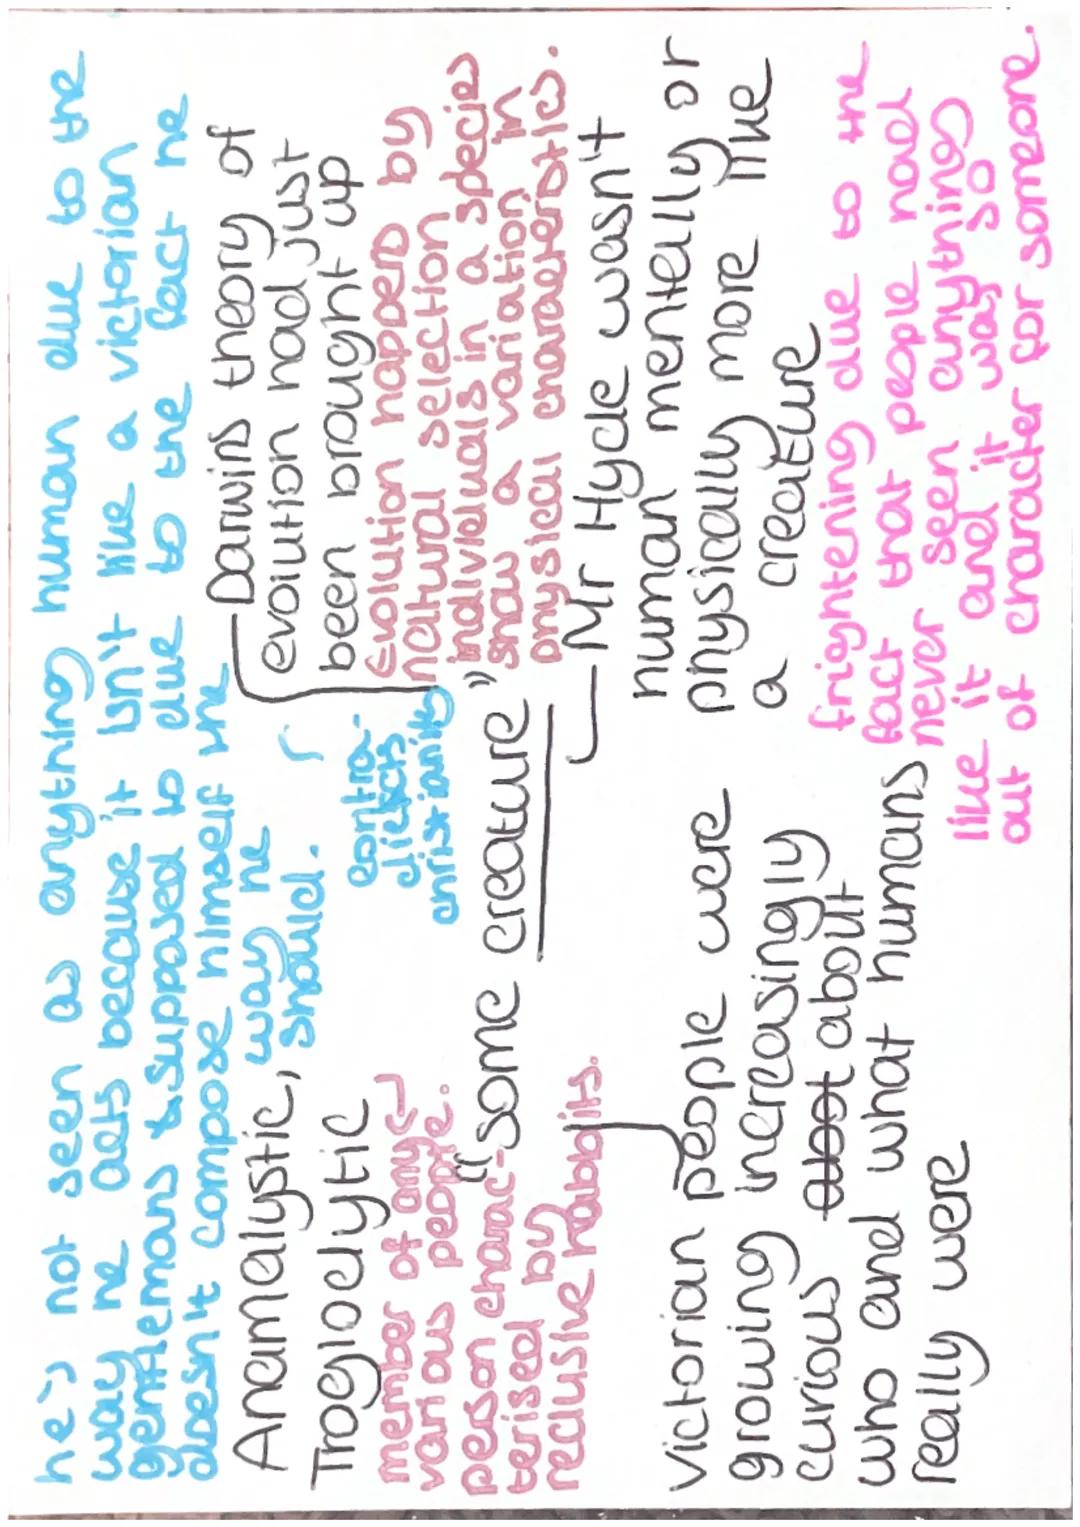 he's not seen as anything human due to the
way he acts because it isn't like a victorian
gentlemans supposed to due to the fact he
doesn't compose himself the
way he
should.
Darwins theory of
evolution had just
been brought up
Evolution hapens by
natural selection
individuals in a species
show a variation in
physical characterstics.
contra-
dicts
christianity
Aneamalystic,
Troglodlytic
member of any
various people.
person charac-
terised by
reclusive habbits.
"some creature"
Mr Hyde wasn't
human mentally or
physically more like
a creature
frightening due to the
fact that people had
never seen anything
like it and it was so
out of character for someone.
Victorian people were
growing increasingly
curious abot about
who and what humans
really were